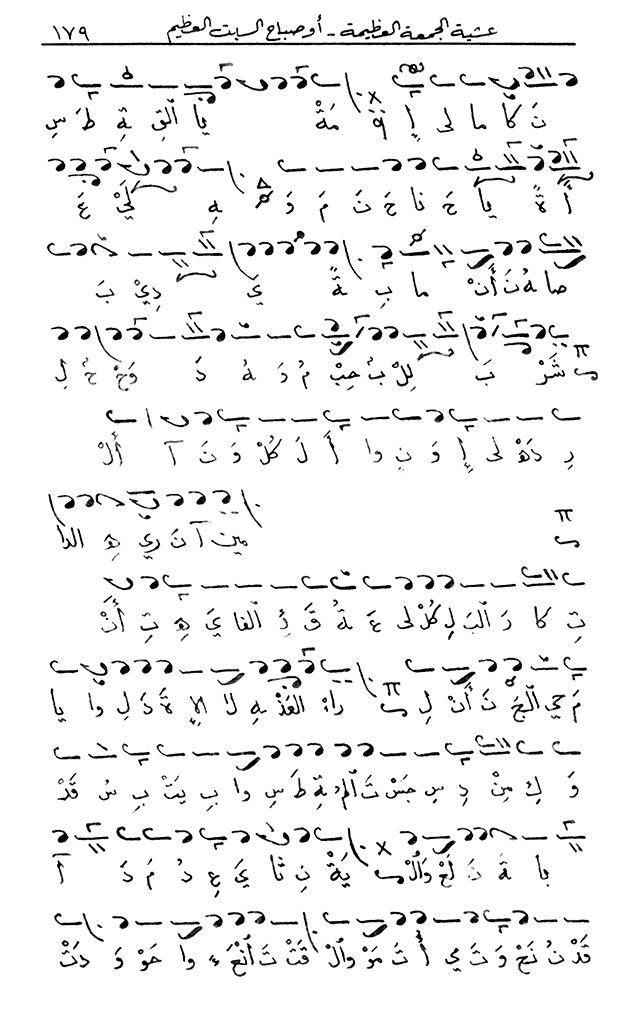 عشية الجمعة العظيمة - أو صباح السبت العظيم ١٧٩
نَ كَا ما لى إِ قَ مَةْ يا اَلْقِ ةِ طَ سِ
أَ ةً يا حَ ناحَ نَ مَ وَ هِ
صا هُ نَ أَنْ ما بِ ةً يَ دِيْ بَ
شَرْ بَ لِلْ بُ حِبْ مُ دَ هُ دَ وَحْ
رِ دَهْ لى إِ وَ نِ وا أَ لَ كُلْ وَ نَ آ أَلْ
مين آ نَ ري هِ الدا
تِ كا رَ الْبَ لِ كُلْ لى عَ ةُ قَ ئِ الفا يَ هِ تِ أَنْ
مَ حي الْجَ نَ أَنْ لِ راءْ الْعَذْ هِ لا الإِ ةَ دَ لِ وا يا
وَ كِ مِنْ دِ سِ جَسْ تَ الْمُ ةِ طَ سِ وا بِ يَتْ بِ سُ قَدْ
با ةَ نَ لَعْ وَالْ يَةْ نِ ثا يَ عِ دُ مَ دَ آ
قَدْ نُ نَحْ وَ تَ مي أُ تَ مَوْ وَالْ قَتْ تَ أَنْعَ ءِ وا حَوْ وَ دَتْ